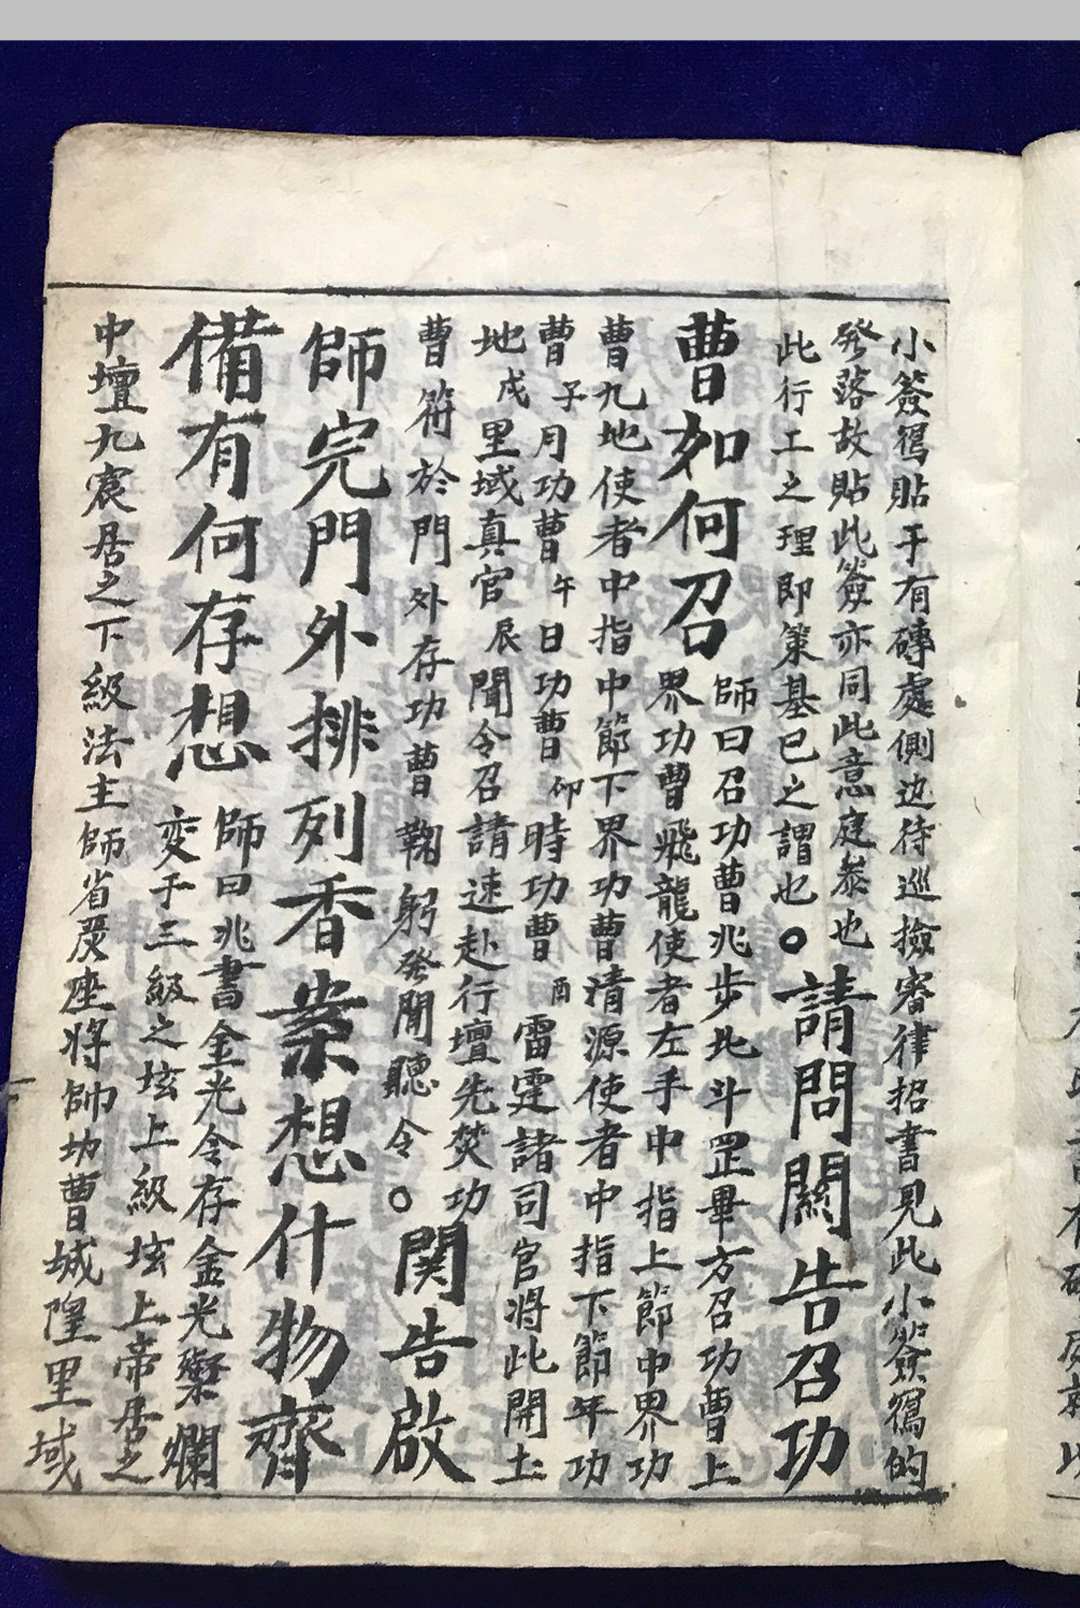 小簽寫貼于有磚處側边待巡撿審律招書見此小簽寫的
發落故貼此簽亦同此意庭叅也
此行工之理即策基已之謂也〇請問關告召功
曹如何召師曰召功曹兆步北斗罡畢方召功曹上
界功曹飛龍使者左手中指上節中界功
曹九地使者中指中節下界功曹清源使者中指下節年功
曹子月功曹午日功曹卯時功曹酉雷霆諸司官將此開土
地戌里域真官辰聞令召請速赴行壇先焚功
曹符於門外存功曹鞠躬發聞聽令〇関告啟
師完門外排列香案想什物齊
備有何存想師曰兆書金光令存金光粲爛
变于三級之垓上級垓上帝居之
中壇九宸居之下級法主師省院座將帥功曹城隍里域